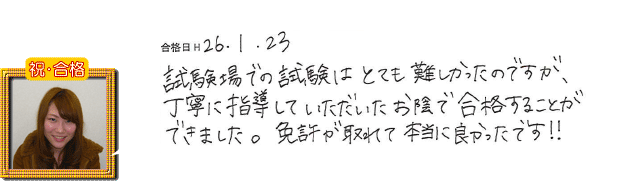 祝・合格
合格日 H 26. 1 . 23
試験場での試験は とても 難しかったのですが、
丁寧に指導していただいたお陰で合格することが
できました。免許が取れて 本当に良かったです!!